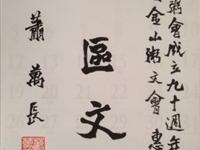 粥會成立九十週年
金山粥文會 惠
區文
蕭萬長